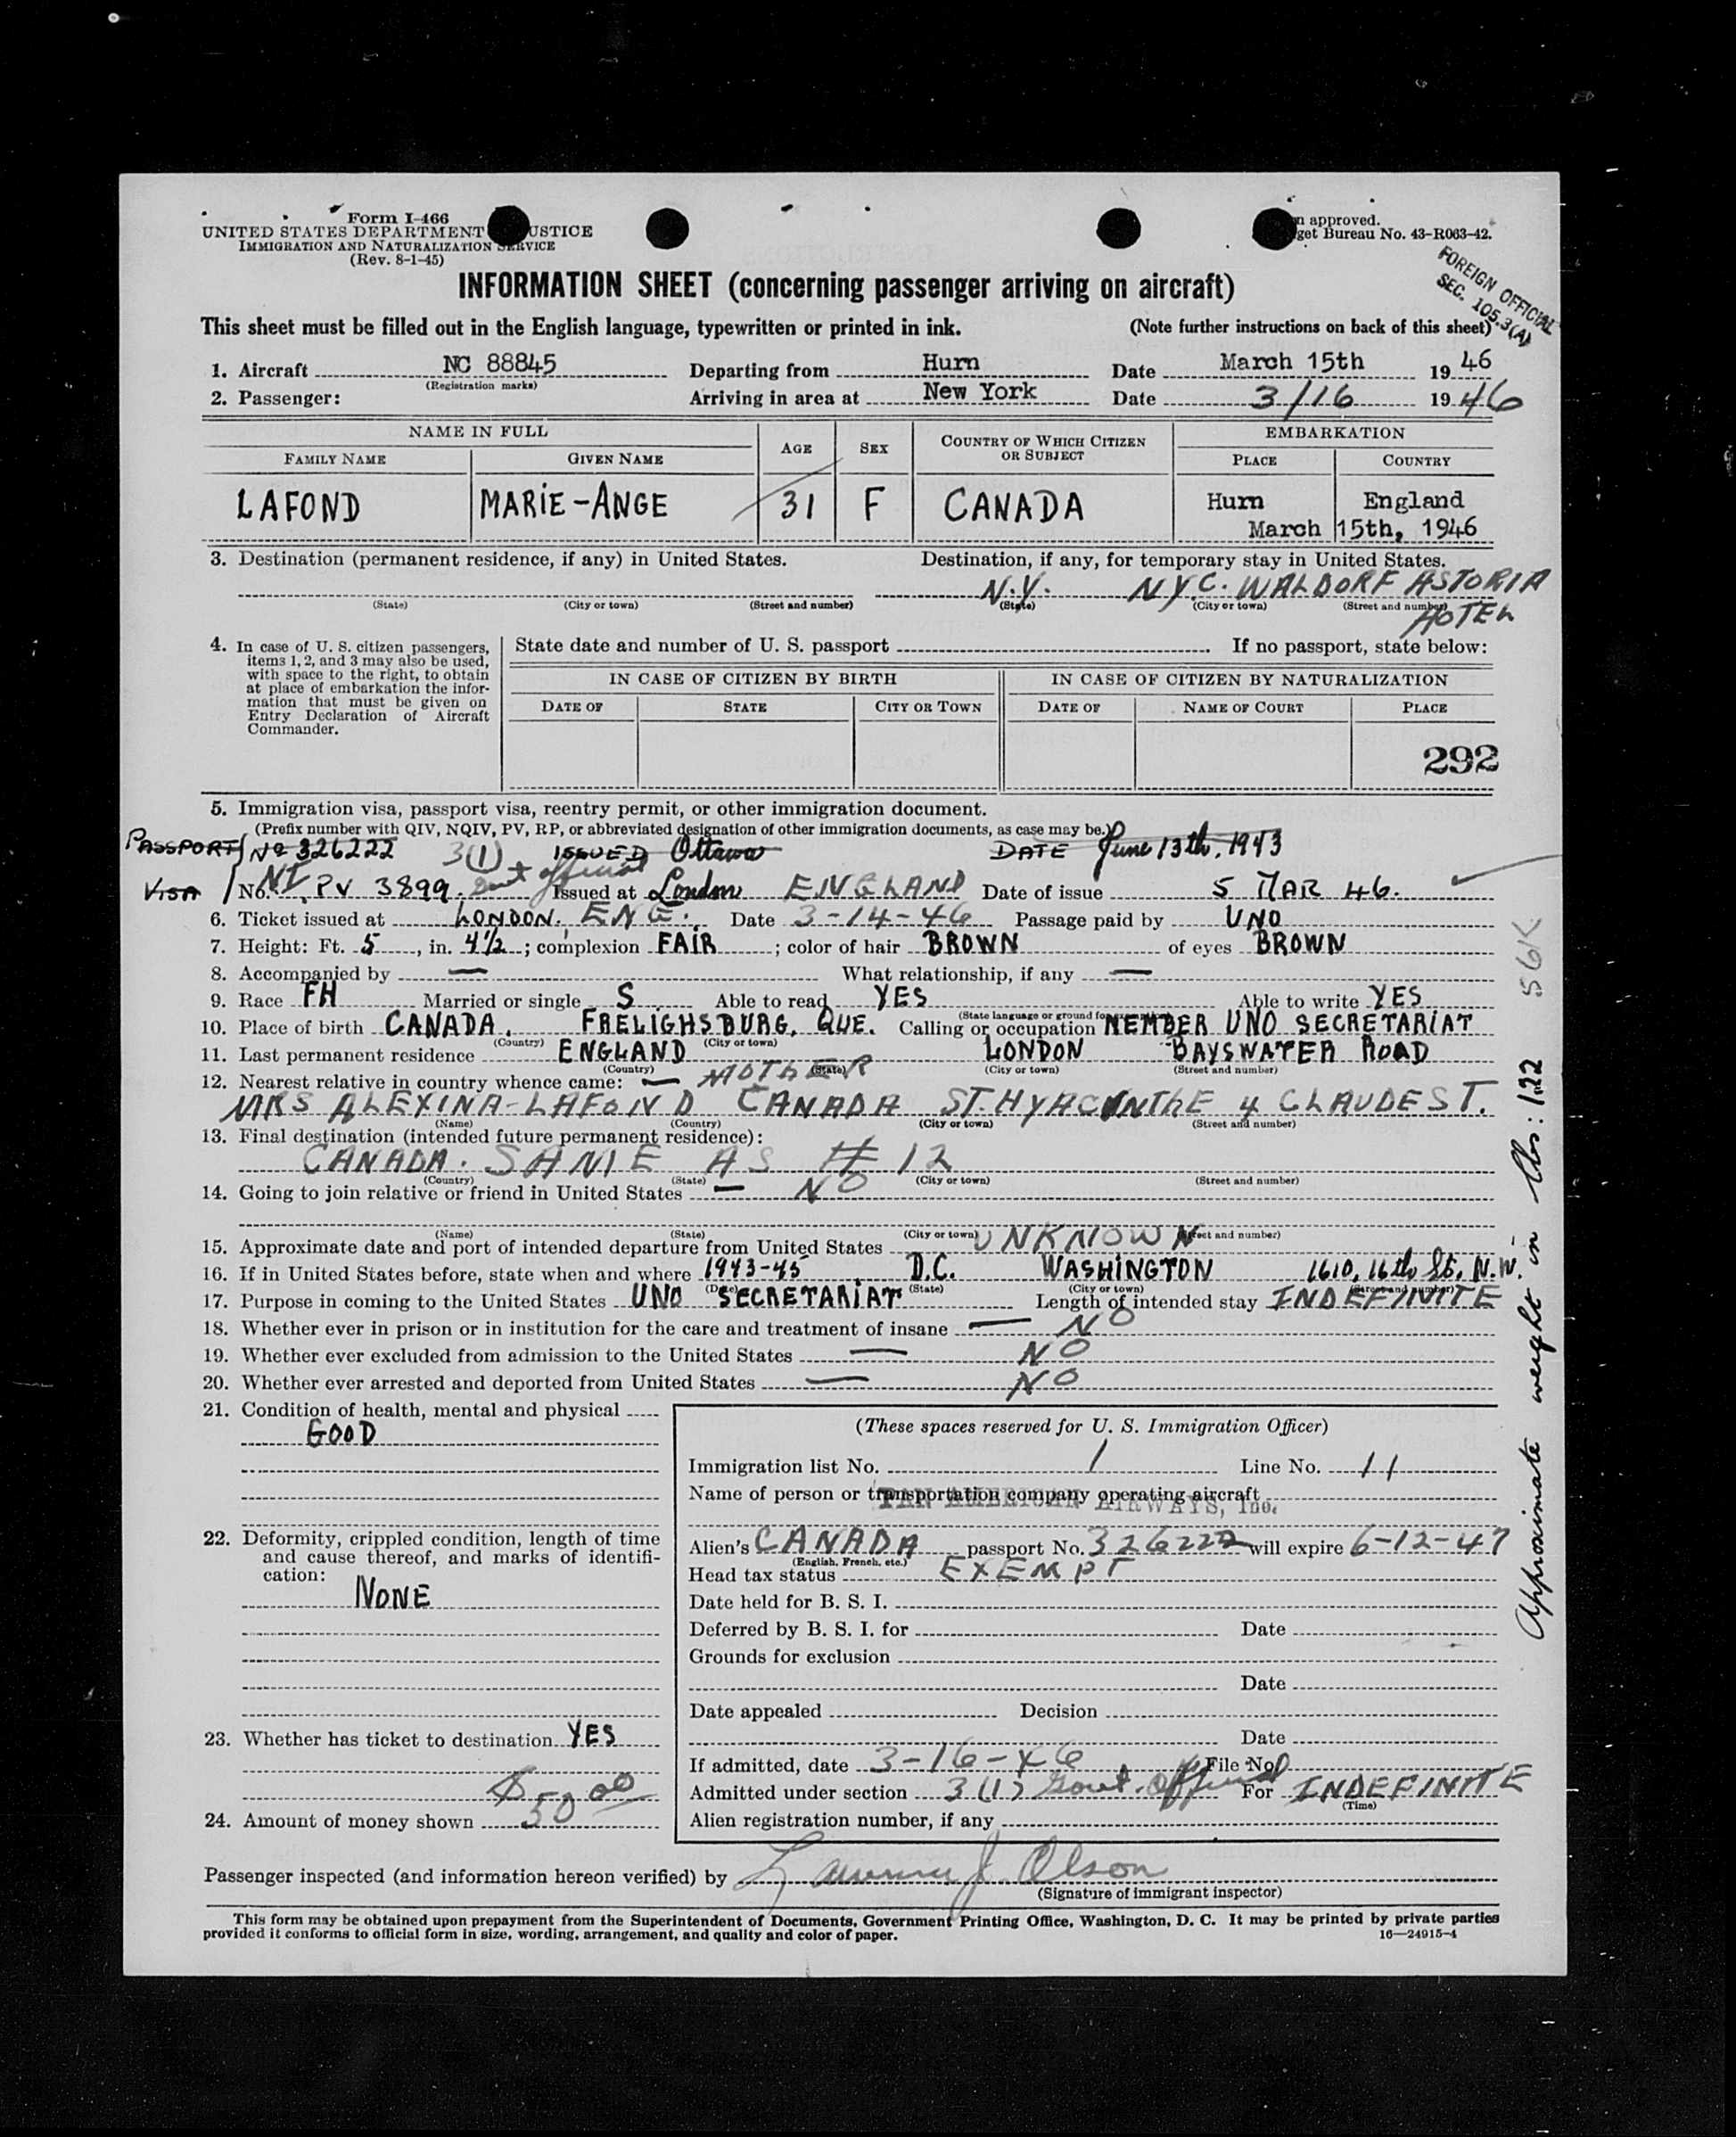 Form I-466
UNITED STATES DEPARTMENT USTICE
IMMIGRATION AND NATURALIZATION SERVICE
(Rev. 8-1-45)
n approved.
get Bureau No. 43-R063-42.
FOREIGN OFFICIAL
SEC. 105.3(A)
INFORMATION SHEET (concerning passenger arriving on aircraft)
This sheet must be filled out in the English language, typewritten or printed in ink. (Note further instructions on back of this sheet)
1. Aircraft NC 88845 Departing from Hurn Date March 15th 1946
(Registration marks)
2. Passenger: Arriving in area at New York Date 3/16 1946
NAME IN FULL AGE SEX COUNTRY OF WHICH CITIZEN OR SUBJECT EMBARKATION
FAMILY NAME GIVEN NAME PLACE COUNTRY
LAFOND MARIE-ANGE 31 F CANADA Hurn England
March 15th, 1946
3. Destination (permanent residence, if any) in United States. Destination, if any, for temporary stay in United States.
N.Y. N.Y.C. WALDORF ASTORIA
(State) (City or town) (Street and number) (State) (City or town) (Street and number)
HOTEL
4. In case of U. S. citizen passengers, items 1, 2, and 3 may also be used, with space to the right, to obtain at place of embarkation the information that must be given on Entry Declaration of Aircraft Commander.
State date and number of U. S. passport If no passport, state below:
IN CASE OF CITIZEN BY BIRTH IN CASE OF CITIZEN BY NATURALIZATION
DATE OF STATE CITY OR TOWN DATE OF NAME OF COURT PLACE
292
5. Immigration visa, passport visa, reentry permit, or other immigration document.
(Prefix number with QIV, NQIV, PV, RP, or abbreviated designation of other immigration documents, as case may be.)
PASSPORT No 326222 3(1) ISSUED Ottawa DATE June 13th, 1943
VISA No. NI PV 3899. Govt official Issued at London ENGLAND Date of issue 5 MAR 46.
6. Ticket issued at LONDON, ENG. Date 3-14-46 Passage paid by UNO
7. Height: Ft. 5, in. 4½; complexion FAIR; color of hair BROWN of eyes BROWN
8. Accompanied by — What relationship, if any —
9. Race FH Married or single S Able to read YES Able to write YES
(State language or ground for exemption)
10. Place of birth CANADA, FRELIGHSBURG, QUE. Calling or occupation MEMBER UNO SECRETARIAT
(Country) (City or town)
11. Last permanent residence ENGLAND LONDON BAYSWATER ROAD
(Country) (State) (City or town) (Street and number)
12. Nearest relative in country whence came: — MOTHER
MRS ALEXINA-LAFOND CANADA ST. HYACINTHE 4 CLAUDE ST.
(Name) (Country) (City or town) (Street and number)
13. Final destination (intended future permanent residence):
CANADA. SAME AS # 12
(Country) (State) (City or town) (Street and number)
14. Going to join relative or friend in United States — NO
(Name) (State) (City or town) (Street and number)
15. Approximate date and port of intended departure from United States UNKNOWN
16. If in United States before, state when and where 1943-45 D.C. WASHINGTON 1610, 16th St. N.W.
(Date) (State) (City or town) (Street and number)
17. Purpose in coming to the United States UNO SECRETARIAT Length of intended stay INDEFINITE
18. Whether ever in prison or in institution for the care and treatment of insane — NO
19. Whether ever excluded from admission to the United States — NO
20. Whether ever arrested and deported from United States — NO
21. Condition of health, mental and physical
GOOD
22. Deformity, crippled condition, length of time and cause thereof, and marks of identification:
NONE
23. Whether has ticket to destination YES
24. Amount of money shown $50.00
(These spaces reserved for U. S. Immigration Officer)
Immigration list No. 1 Line No. 11
Name of person or transportation company operating aircraft
PAN AMERICAN AIRWAYS, Inc.
Alien's CANADA passport No. 326222 will expire 6-12-47
(English, French, etc.)
Head tax status EXEMPT
Date held for B. S. I.
Deferred by B. S. I. for Date
Grounds for exclusion
Date
Date appealed Decision
Date
If admitted, date 3-16-46 File No.
Admitted under section 3(1) Govt. Official For INDEFINITE
(Time)
Alien registration number, if any
Passenger inspected (and information hereon verified) by J. Olson
(Signature of immigrant inspector)
This form may be obtained upon prepayment from the Superintendent of Documents, Government Printing Office, Washington, D. C. It may be printed by private parties
provided it conforms to official form in size, wording, arrangement, and quality and color of paper.
16—24915-4
Approximate weight in lbs: 122 56K